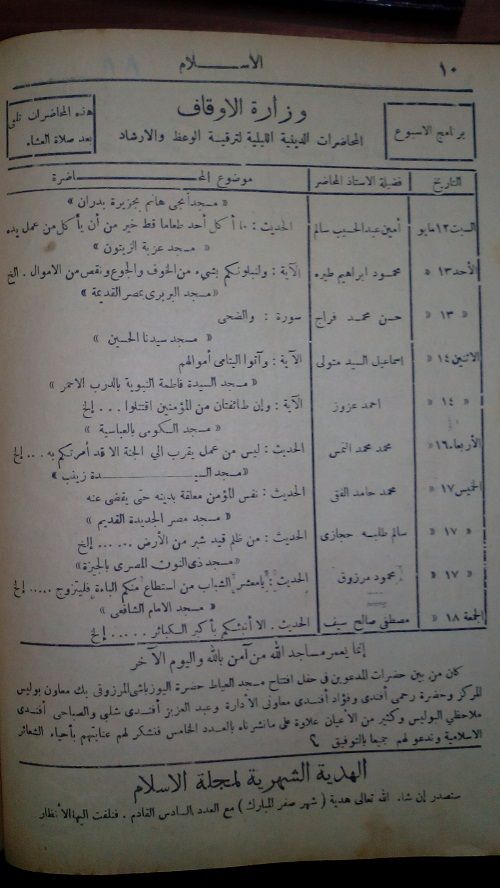 ١٠
الاسلام
وزارة الاوقاف
برنامج الاسبوع
المحاضرات الدينية الليلية لترقية الوعظ والارشاد
هذه المحاضرات تلقى
بعد صلاة العشاء
التاريخ
فضيلة الاستاذ المحاضر
موضوع المحاضرة
« مسجد انجى هانم بجزيرة بدران »
السبت ١٢ مايو
أمين عبد الحسيب سالم
الحديث : ما أكل أحد طعاما قط خير من أن يأكل من عمل يده
« مسجد عزبة الزيتون »
الأحد ١٣ «
محمود ابراهيم طيره
الآية : ولنبلونكم بشيء من الخوف والجوع ونقص من الاموال . الخ
« مسجد البربرى بمصر القديمة »
« ١٣ «
حسن محمد فراج
سورة : والضحى
« مسجد سيدنا الحسين »
الاثنين ١٤ «
اسماعيل السيد متولى
الآية : وآتوا اليتامى أموالهم
« مسجد السيدة فاطمة النبوية بالدرب الاحمر »
« ١٤ «
احمد عزوز
الآية : وإن طائفتان من المؤمنين اقتتلوا . . . إلخ
« مسجد الكومى بالعباسية »
الأربعاء ١٦ «
محمد محمد النمس
الحديث : ليس من عمل يقرب الى الجنة الا قد أمرتكم به . . . إلخ
« مسجد السيدة زينب »
الخميس ١٧ «
محمد حامد الفقى
الحديث : نفس المؤمن معلقة بدينه حتى يقضى عنه
« مسجد مصر الجديدة القديم »
« ١٧ «
سالم طلبه حجازى
الحديث : من ظلم قيد شبر من الأرض ...... إلخ
« مسجد ذى النون المصرى بالجيزة »
« ١٧ «
محمود مرزوق
الحديث : يامعشر الشباب من استطاع منكم الباءة فليتزوج ..... إلخ
« مسجد الامام الشافعى »
الجمعة ١٨ «
مصطفى صالح سيف
الحديث . الا أنبئكم بأكبر الكبائر ..... إلخ
إنما يعمر مساجد الله من آمن بالله واليوم الآخر
كان من بين حضرات المدعوين فى حفل افتتاح مسجد العياط حضرة اليوزباشى المرزوقى بك معاون بوليس
المركز وحضرة رحمى أفندى وفؤاد أفندى معاونى الأدارة وعبد العزيز أفندى شلبى والصباحى أفندى
ملاحظى البوليس وكثير من الأعيان علاوة على ما نشرناه بالعدد الخامس فنشكر لهم عنايتهم بأحياء الشعائر
الاسلامية وندعو لهم جميعا بالتوفيق
الهدية الشهرية لمجلة الاسلام
ستصدر إن شاء الله تعالى هدية ( شهر صفر المبارك ) مع العدد السادس القادم . فنلفت اليها الأنظار